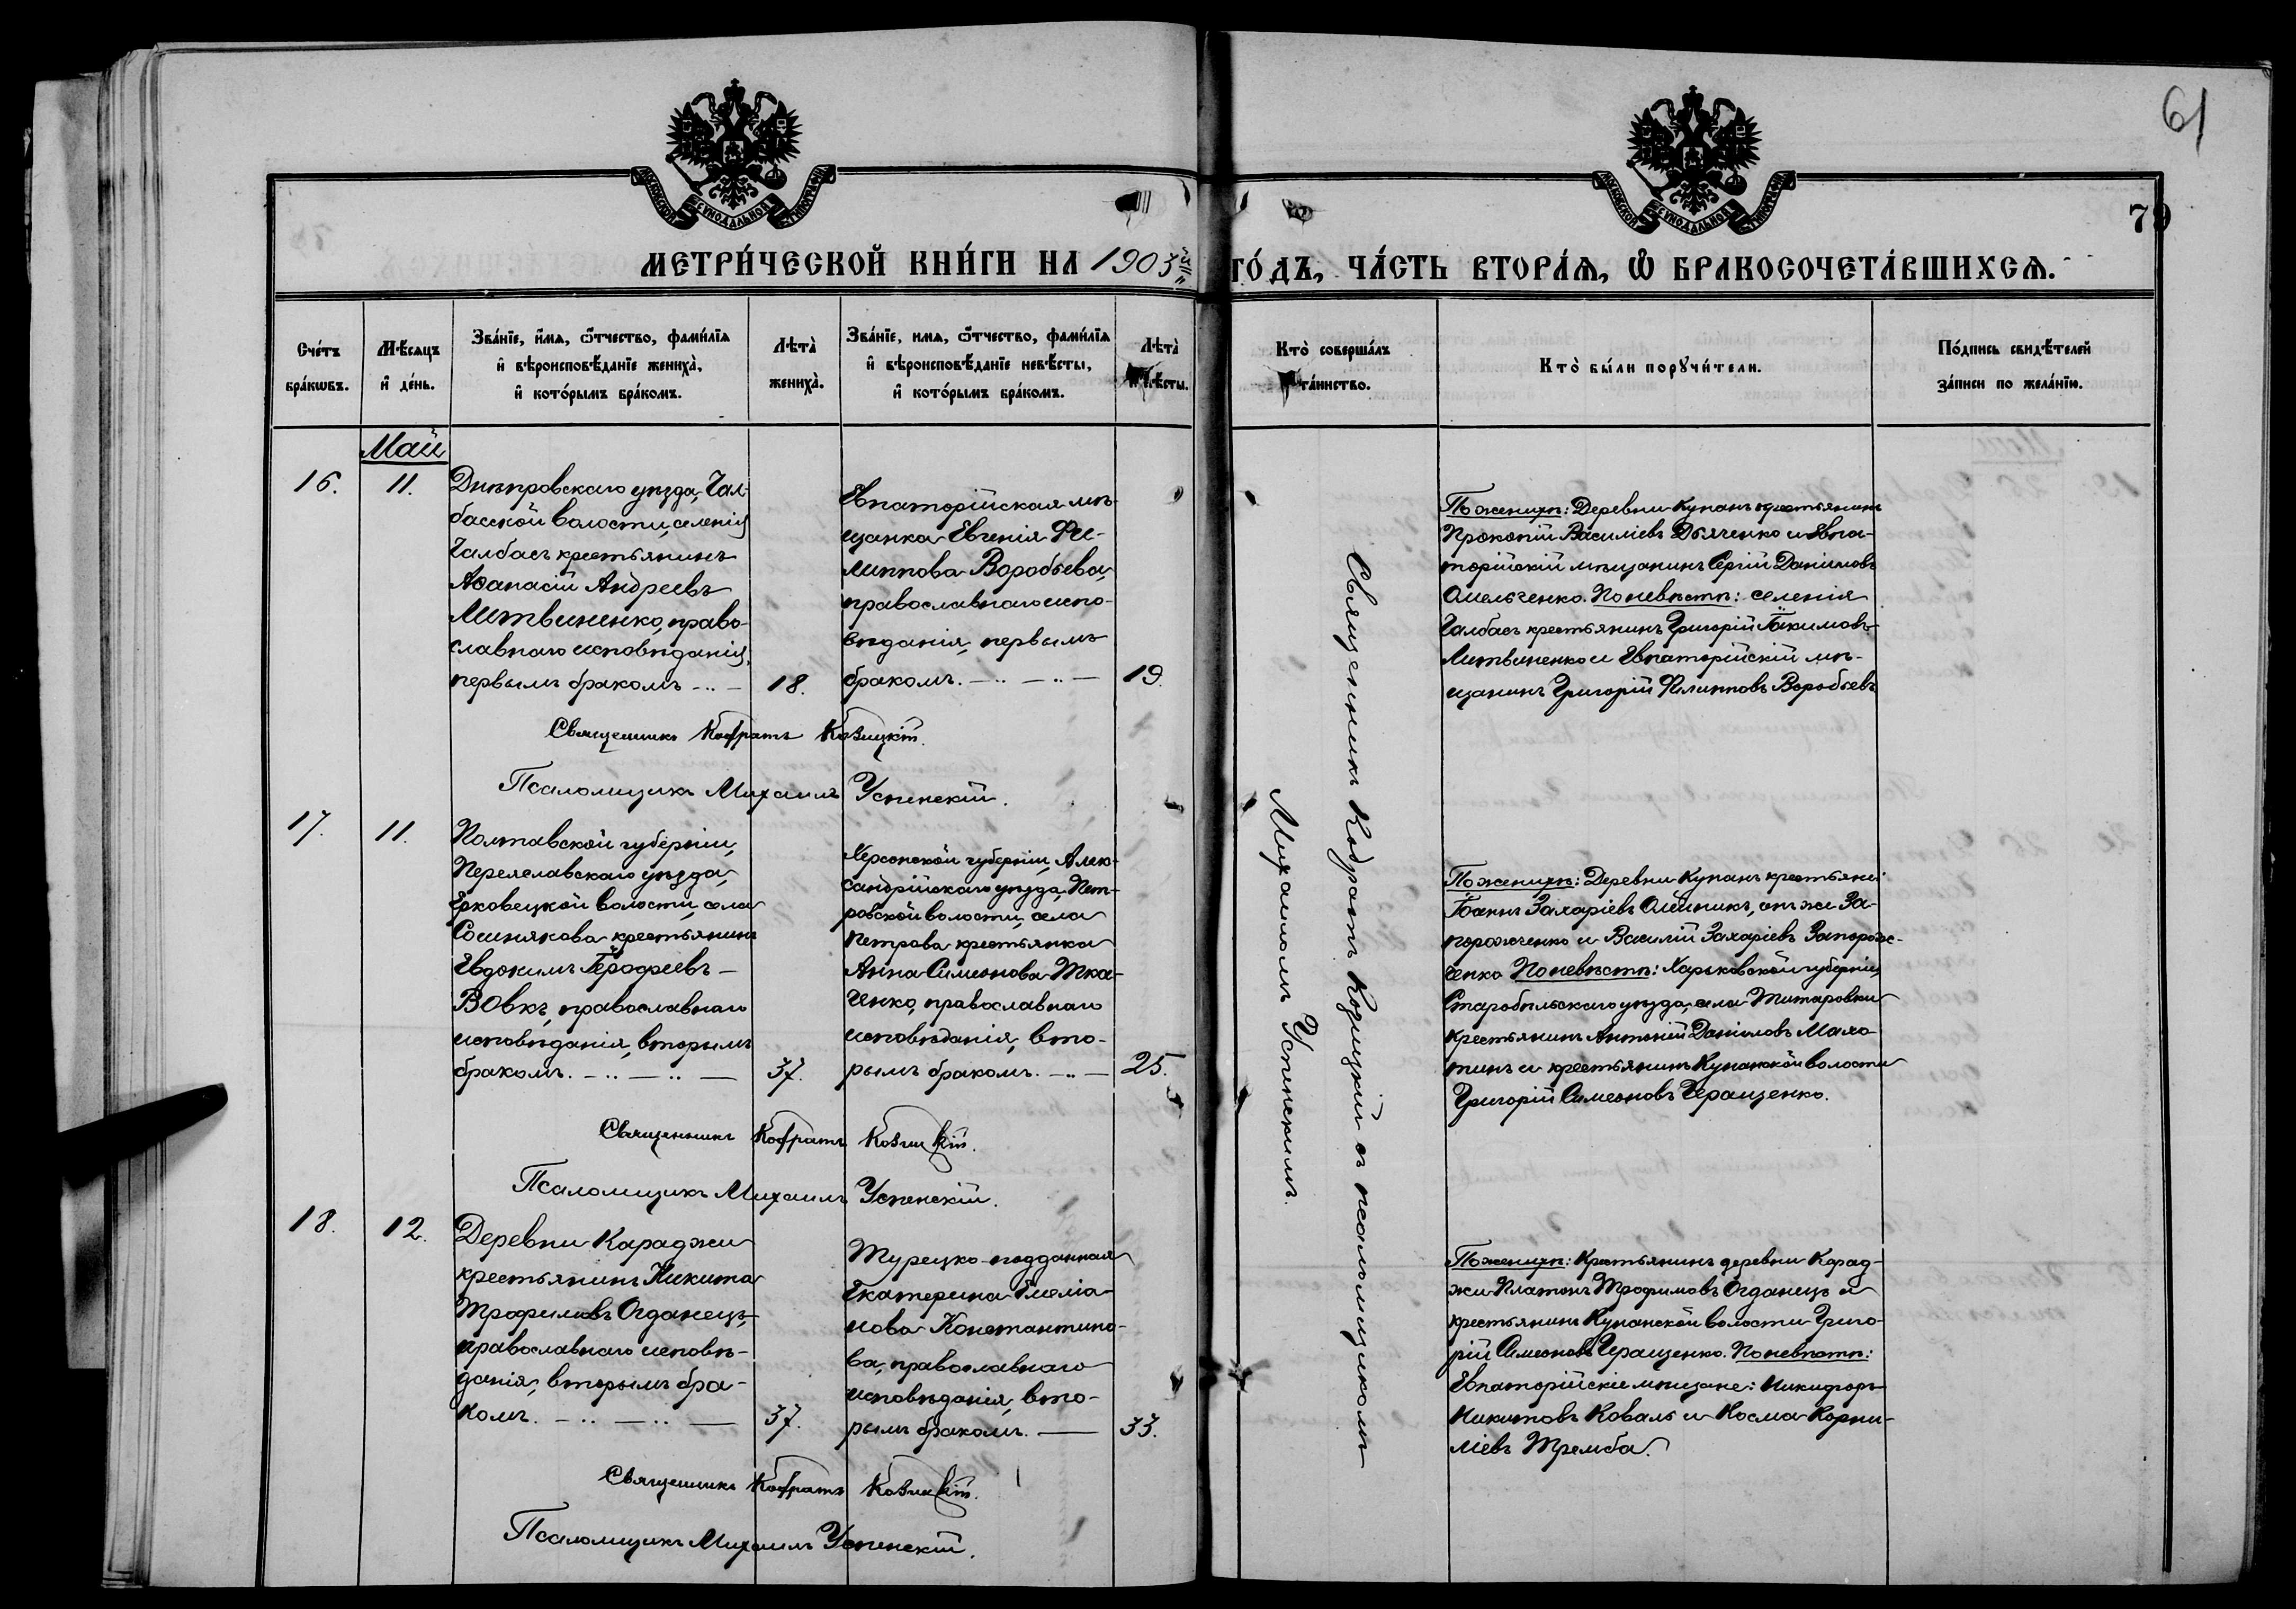 61
79
МОСКОВСКОЙ СѴНОДАЛЬНОЙ ТИПОГРАФІИ
МОСКОВСКОЙ СѴНОДАЛЬНОЙ ТИПОГРАФІИ
МЕТРИ́ЧЕСКОЙ КНИ́ГИ НА 1903й ГО́ДЪ, ЧА́СТЬ ВТОРА́Ѧ, Ѽ БРАКОСОЧЕТА́ВШИХСѦ.
Сче́тъ
бра́кѡвъ.
Мѣ́сяцъ
и҆ де́нь.
Зва́нїе, и҆́мѧ, ѻ҆́тчество, фами́лїѧ
и҆ вѣроисповѣ́данїе жениха̀,
и҆ кото́рымъ бра́комъ.
Лѣта̀
жениха̀.
Зва́нїе, имѧ, ѻ҆́тчество, фами́лїѧ
и҆ вѣроисповѣ́данїе невѣ́сты,
и҆ кото́рымъ бра́комъ.
Лѣта̀
невѣ́сты.
Кто̀ соверша́лъ
та́инство.
Кто̀ бы́ли порꙋчи́тели.
По́дпись свидѣ́телей
за́писи по жела́нїю.
Май
16.
11.
Днѣпровскаго уѣзда, Чал-
басской волости, селенія
Чалбасъ крестьянинъ
Аѳанасій Андреевъ
Литвиненко, право-
славнаго исповѣданія,
первымъ бракомъ
18.
Евпаторійская мѣ-
щанка Евгенія Фи-
липпова Воробьева,
православнаго испо-
вѣданія, первымъ
бракомъ.
19.
По женихѣ: Деревни Кунанъ крестьянинъ
Прокопій Василіевъ Дьяченко и Евпа-
торійскій мѣщанинъ Сергій Даніиловъ
Омельченко. По невѣстѣ: селенія
Чалбасъ крестьянинъ Григорій Іакимовъ
Литвиненко и Евпаторійскій мѣ-
щанинъ Григорій Филипповъ Воробьевъ
Священникъ Кодратъ Козицкій.
Псаломщикъ Михаилъ Успенскій.
Священникъ Кодратъ Козицкій съ псаломщикомъ
Михаиломъ Успенскимъ.
17.
11.
Полтавской губерніи,
Переяславскаго уѣзда,
Ерковецкой волости, села
Сосинякова крестьянинъ
Евдокимъ Іероѳеевъ
Вовкъ, православнаго
исповѣданія, вторымъ
бракомъ.
37.
Херсонской губерніи, Алек-
сандрійскаго уѣзда, Пет-
ровской волости, села
Петрова крестьянка
Анна Симеонова Тка-
ченко, православнаго
исповѣданія, вто-
рымъ бракомъ.
25.
По женихѣ: Деревни Кунанъ крестьяне:
Іоаннъ Захаріевъ Олійникъ, онъ же За-
порожченко и Василій Захаріевъ Запорож-
ченко По невѣстѣ: Харьковской губерніи
Старобѣльскаго уѣзда, села Титаровки
крестьянинъ Антоній Даніиловъ Махо-
тинъ и крестьянинъ Кунанской волости
Григорій Симеоновъ Геращенко.
Священникъ Кодратъ Козицкій.
Псаломщикъ Михаилъ Успенскій.
18.
12.
Деревни Караджи
крестьянинъ Никита
Трофимовъ Огданецъ,
православнаго исповѣ-
данія, вторымъ бра-
комъ.
37.
Турецко-подданная
Екатерина Емелiа-
нова Константино-
ва, православнаго
исповѣданія, вто-
рымъ бракомъ.
33.
По женихѣ: Крестьянинъ деревни Карад-
жи Платонъ Трофимовъ Огданецъ и
крестьянинъ Кунанской волости Григо-
рій Симеоновъ Геращенко. По невѣстѣ:
Евпаторійскіе мѣщане: Никифоръ
Никитовъ Коваль и Косма Корни-
ліевъ Тремба.
Священникъ Кодратъ Козицкій.
Псаломщикъ Михаилъ Успенскій.